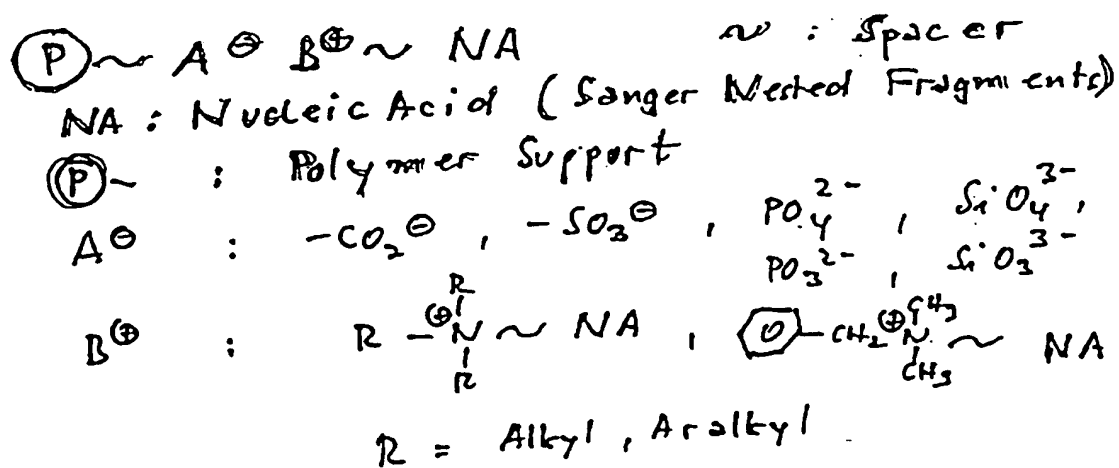 Ⓟ~ A⊖ B⊕ ~ NA ~ : Spacer
NA : Nucleic Acid (Sanger Nested Fragments)
Ⓟ~ : Polymer Support
A⊖ : -CO₂⊖ , -SO₃⊖ , PO₄²⁻ , SiO₄³⁻ ,
PO₃²⁻ , SiO₃³⁻
R
B⊕ : R -⊕N ~ NA , -CH₂ ⊕N ~ NA
CH₃
R CH₃
R = Alkyl , Aralkyl .